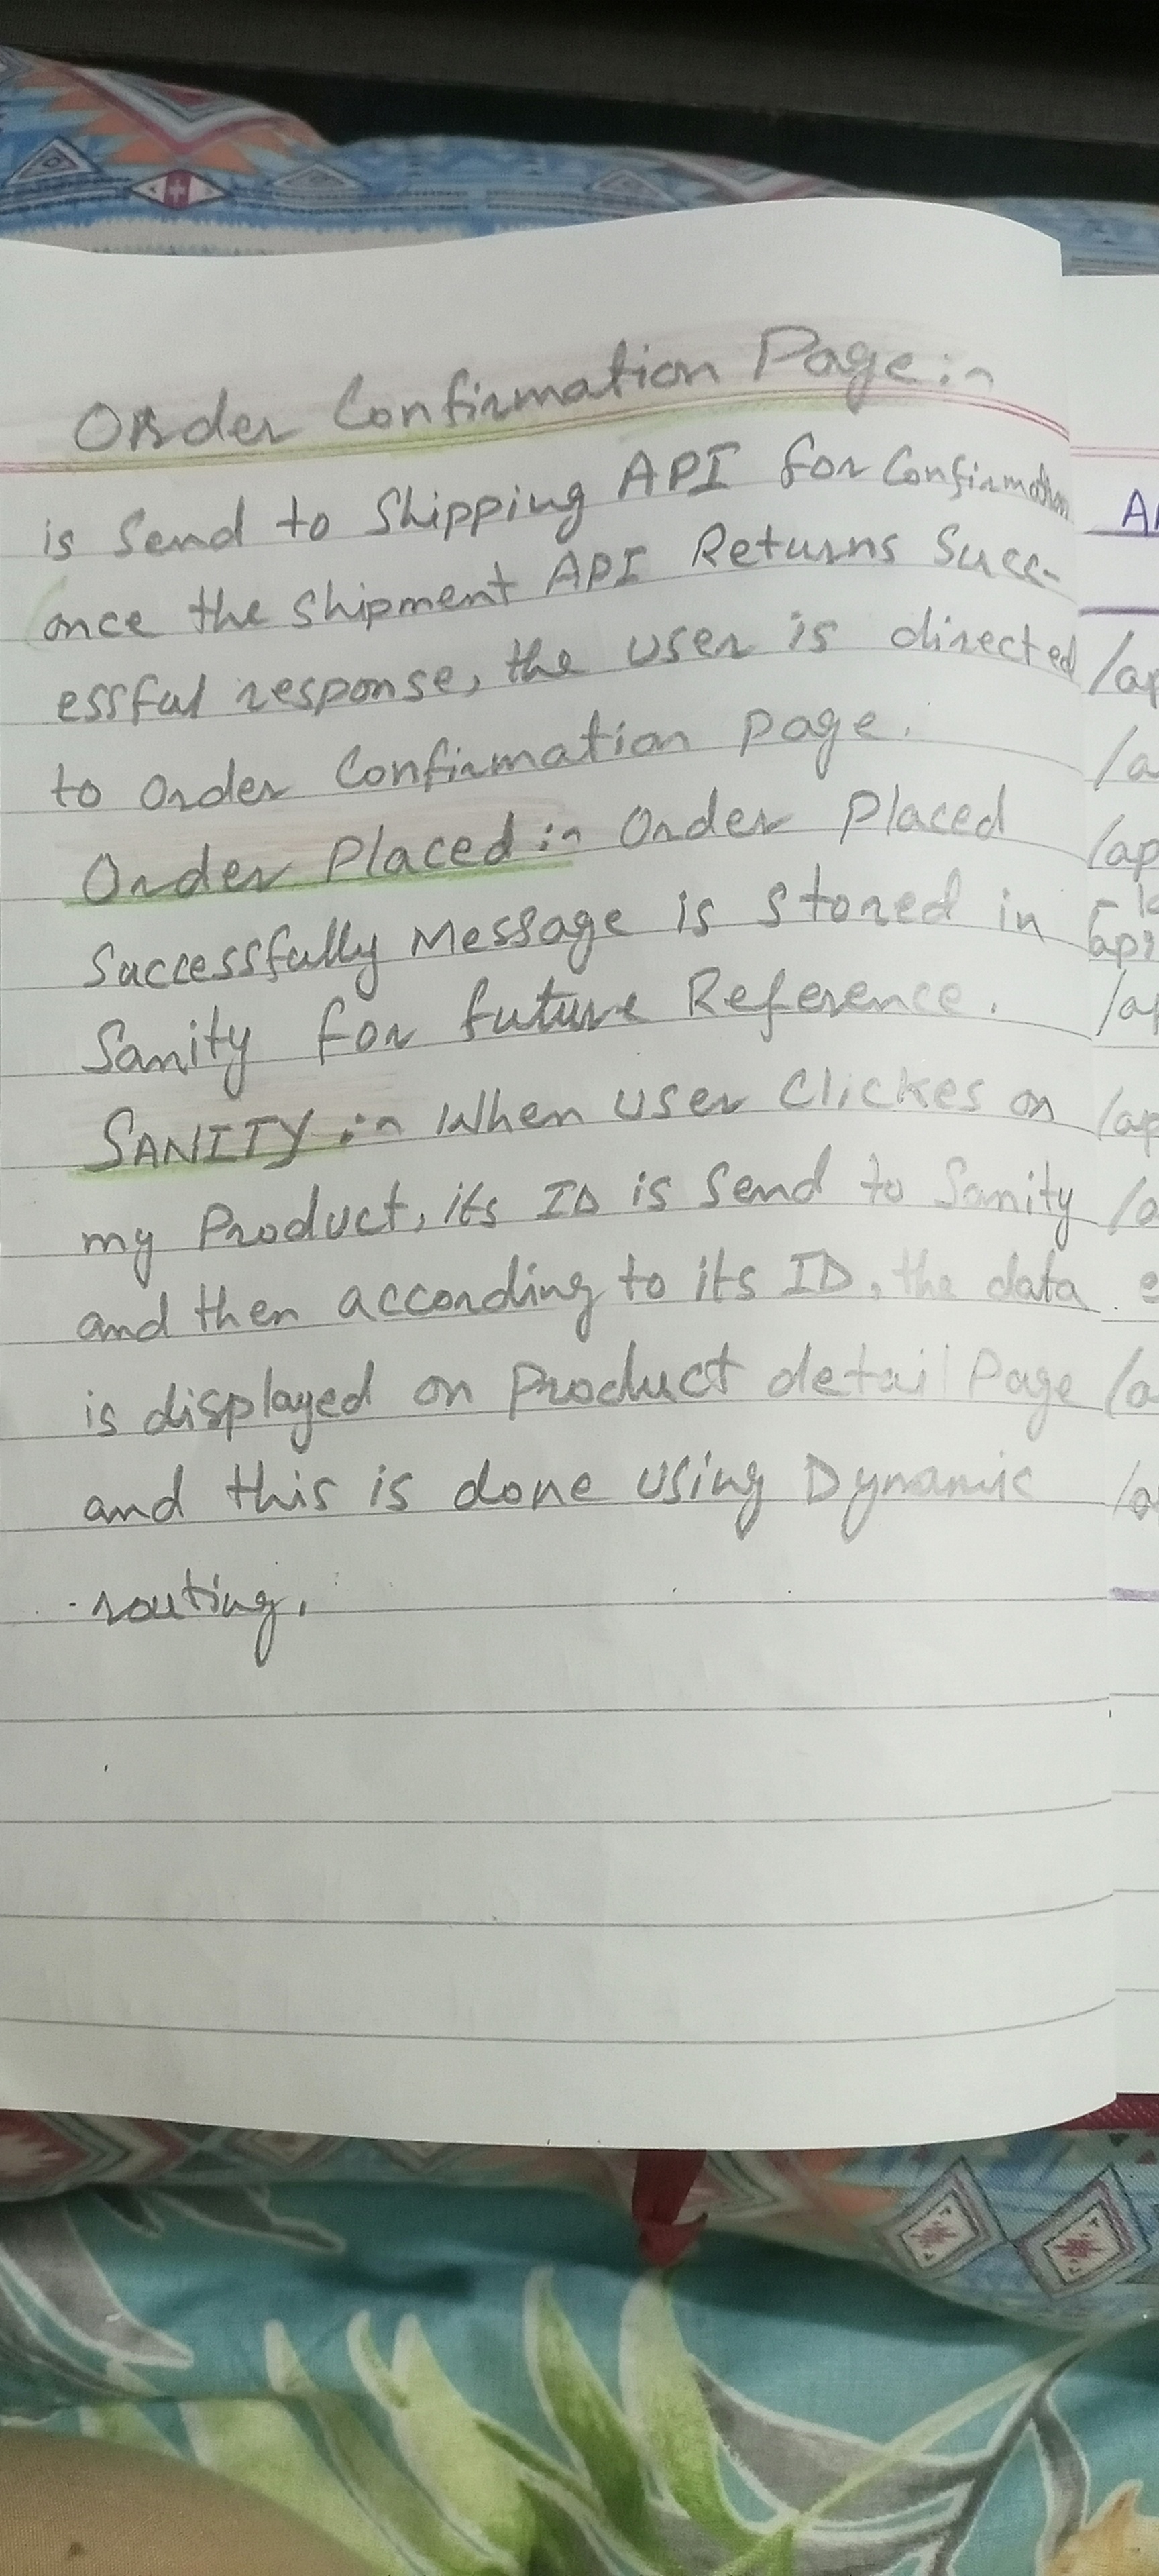 Order Confirmation Page:-
is Send to Shipping API for Confirmation
once the Shipment API Returns Succ-
essful response, the user is directed
to Order Confirmation page.
Order Placed:- Order Placed
Successfully Message is stored in
Sanity for future Reference.
SANITY:- When user Clickes on
my Product, its ID is Send to Sanity
and then according to its ID, the data
is displayed on Product detail Page
and this is done using Dynamic
routing.
/ap
/a
/ap
/a
/ap
/a
/a